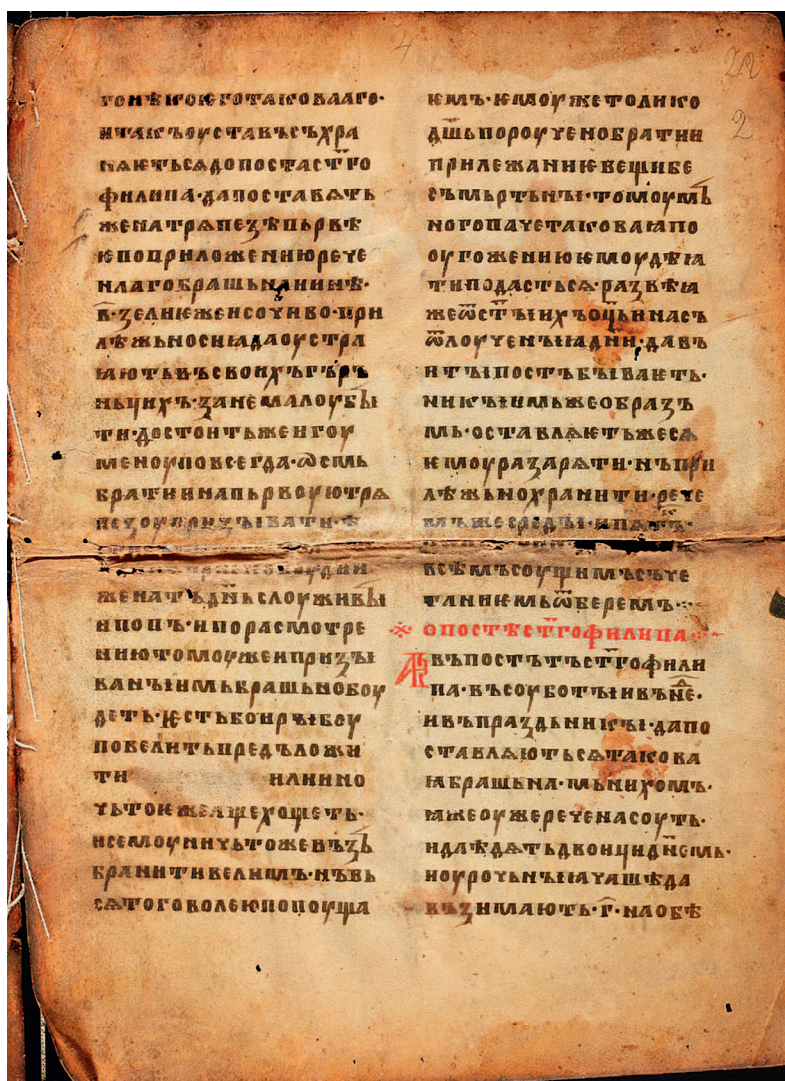 гонѣкоюготаковааго·
итакъоуставъсъхра
няѥтьсѧдопостаст҃го
филипа·дапоставѧть
женатрѧпезѣпьрвѣ
ѥпоприложениюрече
нлагобрашьнанинѣ·
в҃·зелиѥженсочиво·при
лѣжьносиꙗдаоустра
ꙗютьвъсвоихъгърь
ньцихъ·занемалоубꙑ
ти·достоитьжеигоу
меноуповсегда·ѡсмь
братиинапьрвоуютрѧ
пезоупризꙑвати·ѣ
женатъдн҃ьслоуживꙑ
ипопъ·ипорасмотре
ниютомоужеипризꙑ
ванꙑимьбрашьнобоу
деть·ѥстьбоирꙑбоу
повелитьпредъложи
ти илиино
чьтоѥжеащехощеть·
исемоуничьтожевъзъ
бранитивелимъ·нъвь
сѧтоговолеюпопоуща
ѥмъ·ѥмоужетолико
дш҃ьпороученобратии
прилежаниѥвещибе
съмьртьнꙑ·томоумь
ногопачетаковаꙗпо
оугожениюѥмоудѣꙗ
типодастьсѧ·развѣꙗ
жеѿст҃ꙑихъоц҃ьинасъ
ѿлоученꙑꙗдн҃и·давъ
итꙑпостъбꙑваѥть·
никꙑимьжеобразъ
мь·оставлѧѥтьжесѧ
ѥмоуразарѧти·нъпри
лѣжьнохранити·рече
мъжесредꙑ·ипѧтъ·
всѣмъсоущимъсъче
таниѥмьѿберемъ·
опостѣст҃гофилипа
въпостътъст҃гофили
па·въсоуботꙑивън҃е·
ивъпраздьникꙑ·дапо
ставлѧютьсѧтакова
ꙗбрашьна·мьнихомъ·
ꙗжеоужереченасоуть·
идаѣдѧтьдвоицидн҃ємь·
иоурочьнꙑꙗчашѣда
възимають·г҃·наобѣ